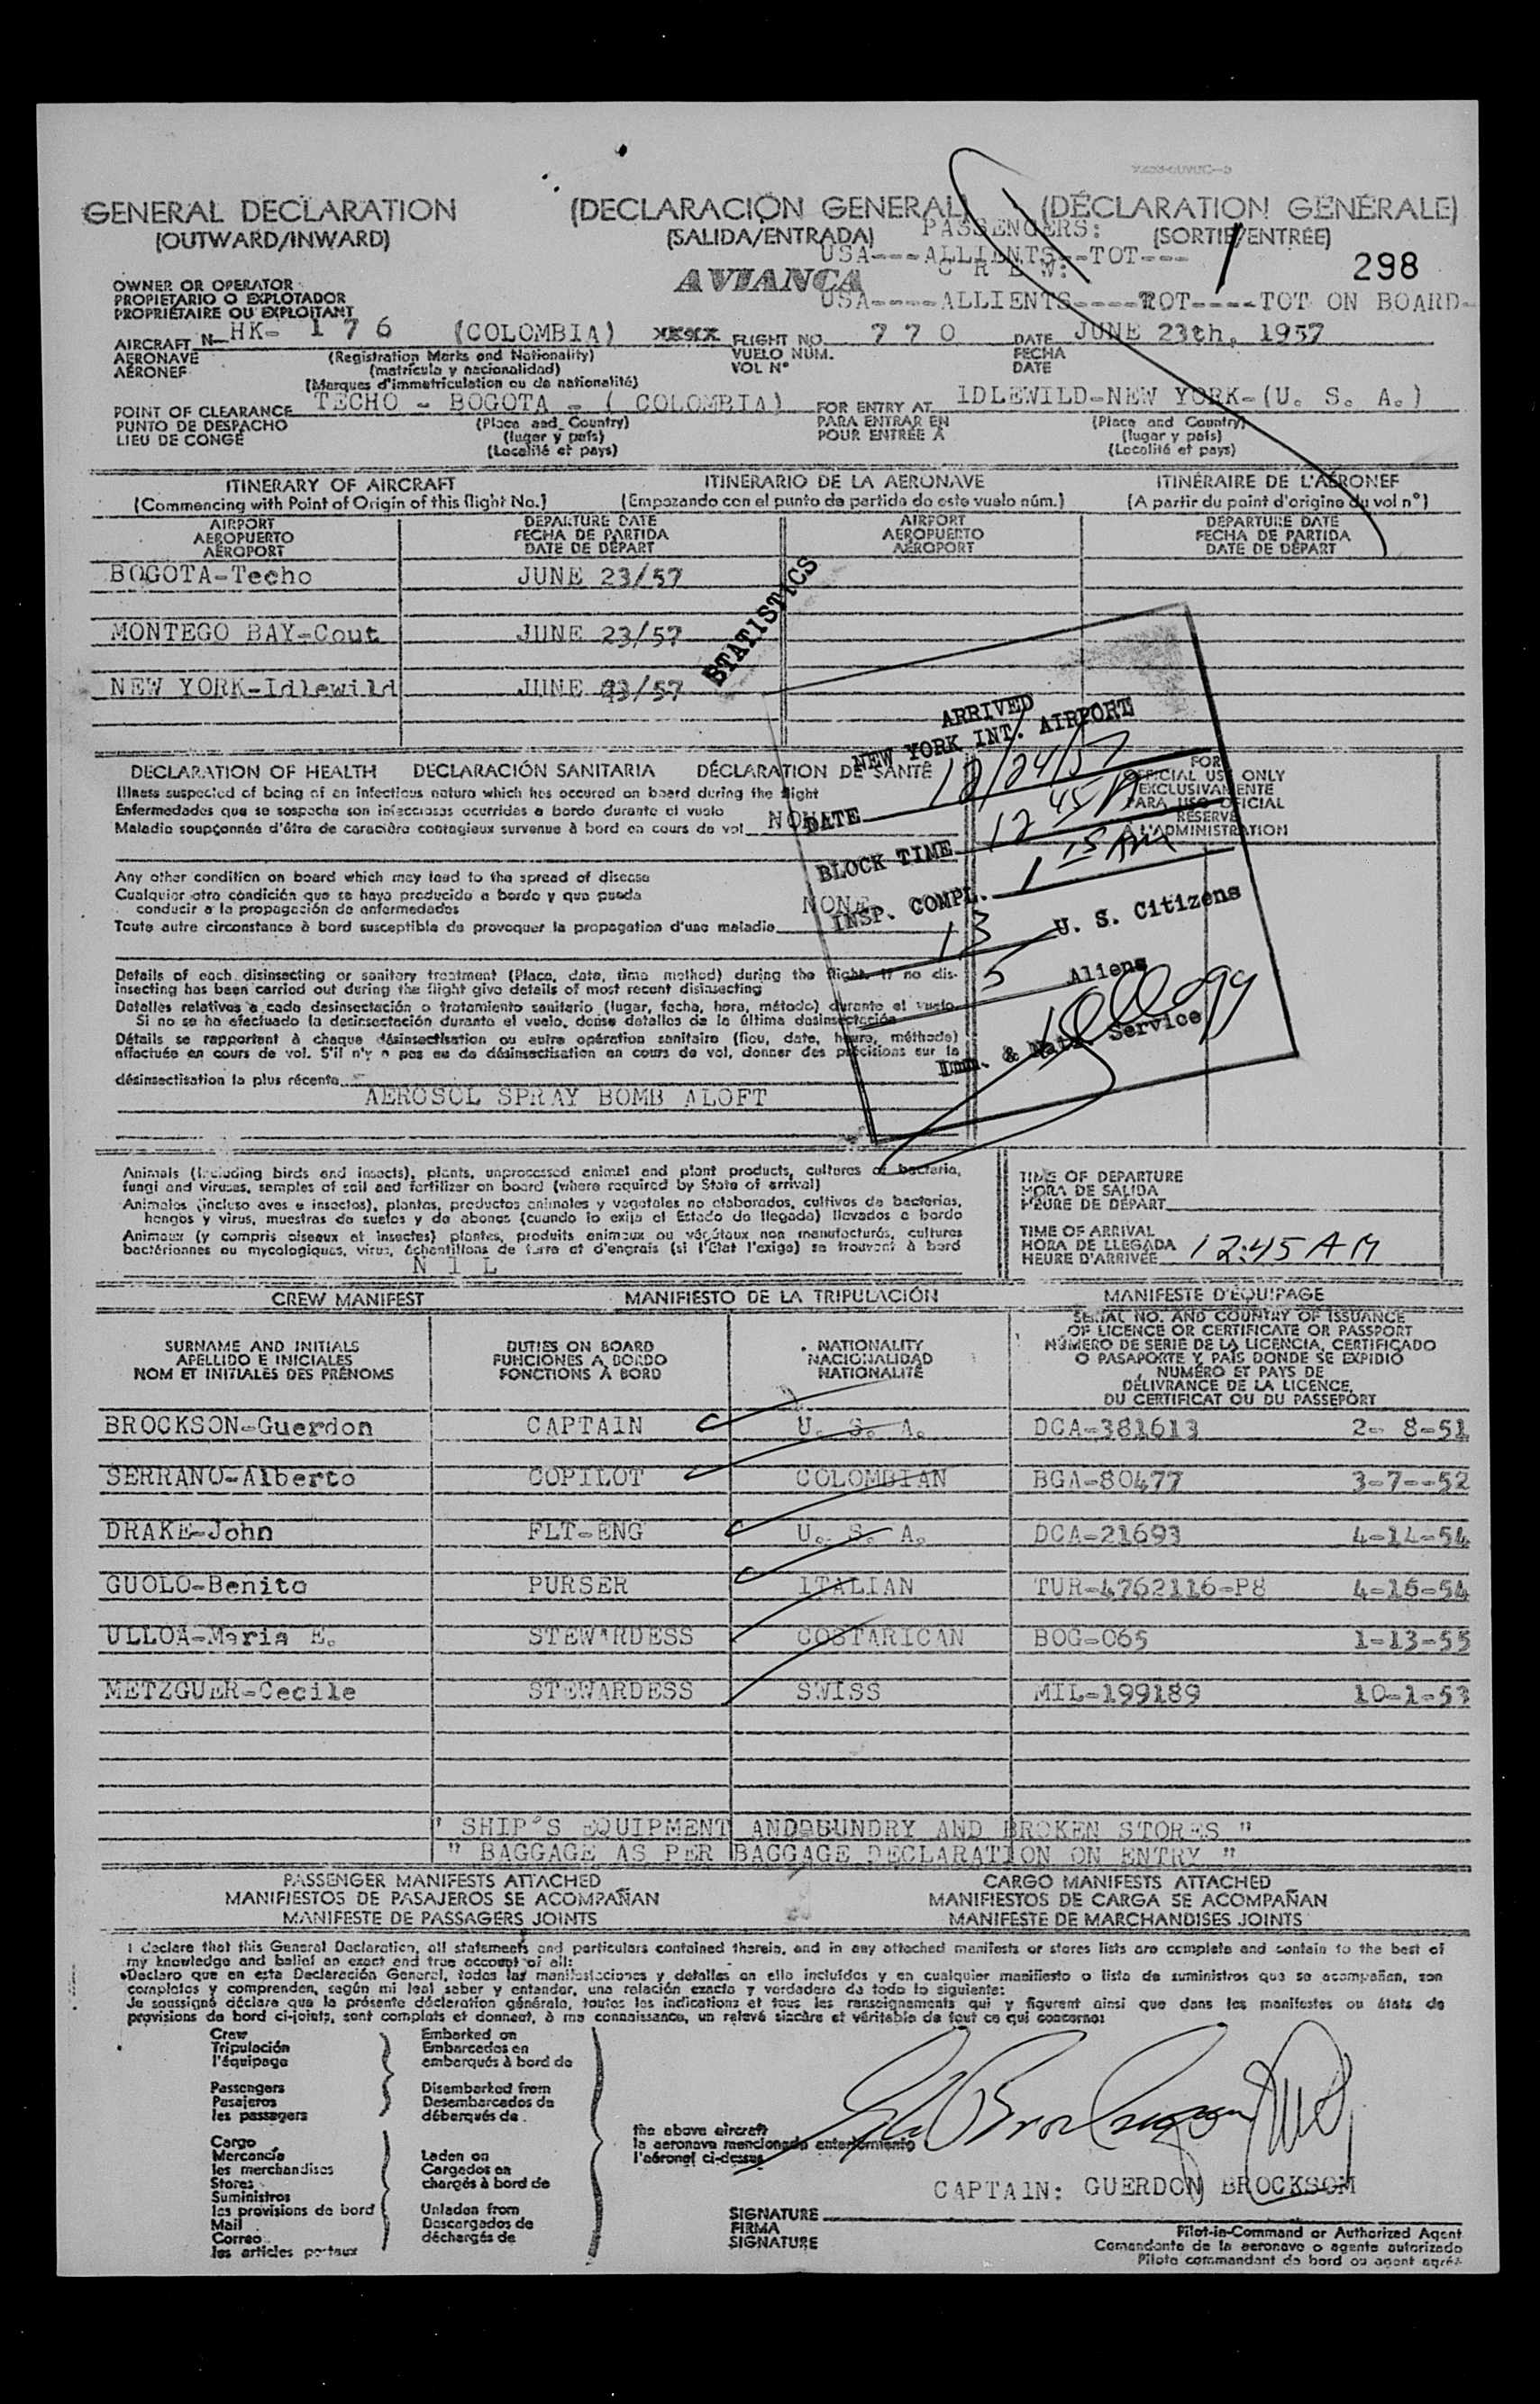 GENERAL DECLARATION (DECLARACIÓN GENERAL) (DÉCLARATION GÉNÉRALE)
(OUTWARD/INWARD) (SALIDA/ENTRADA) (SORTIE/ENTRÉE)
PASSENGERS:
USA---ALLIENTS--TOT---
C R E W:
298
AVIANCA
USA----ALLIENTS----TOT----TOT ON BOARD-
OWNER OR OPERATOR
PROPIETARIO O EXPLOTADOR
PROPRIÉTAIRE OU EXPLOITANT
AIRCRAFT N HK- 1 7 6 (COLOMBIA) FLIGHT NO. 7 7 0 DATE JUNE 23th, 1957
AERONAVE (Registration Marks and Nationality) VUELO NÚM. FECHA
AÉRONEF (matrícula y nacionalidad) VOL N° DATE
(Marques d'immatriculation ou de nationalité)
POINT OF CLEARANCE TECHO - BOGOTA - ( COLOMBIA) FOR ENTRY AT IDLEWILD-NEW YORK-(U. S. A.)
PUNTO DE DESPACHO (Place and Country) PARA ENTRAR EN (Place and Country)
LIEU DE CONGÉ (lugar y país) POUR ENTRÉE À (lugar y país)
(Localité et pays) (Localité et pays)
ITINERARY OF AIRCRAFT ITINERARIO DE LA AERONAVE ITINÉRAIRE DE L'AÉRONEF
(Commencing with Point of Origin of this flight No.) (Empezando con el punto de partida de este vuelo núm.) (A partir du point d'origine du vol n°)
AIRPORT DEPARTURE DATE AIRPORT DEPARTURE DATE
AEROPUERTO FECHA DE PARTIDA AEROPUERTO FECHA DE PARTIDA
AÉROPORT DATE DE DÉPART AÉROPORT DATE DE DÉPART
BOGOTA-Techo JUNE 23/57
MONTEGO BAY-Cout JUNE 23/57
NEW YORK-Idlewild JUNE 23/57
STATISTICS
ARRIVED
NEW YORK INT. AIRPORT
DATE
BLOCK TIME 12 45 A
INSP. COMPL. 1 15 AM
13 U. S. Citizens
5 Aliens
Imm. & Natz. Service
DECLARATION OF HEALTH DECLARACIÓN SANITARIA DÉCLARATION DE SANTÉ
FOR OFFICIAL USE ONLY
EXCLUSIVAMENTE
PARA USO OFICIAL
RÉSERVÉ
À L'ADMINISTRATION
Illness suspected of being of an infectious nature which has occured on board during the flight
Enfermedades que se sospecha son infecciosas ocurridas a bordo durante el vuelo
Maladie soupçonnée d'être de caractère contagieux survenue à bord en cours de vol NONE
Any other condition on board which may lead to the spread of disease
Cualquier otra condición que se haya producido a bordo y que pueda
conducir a la propagación de enfermedades NONE
Toute autre circonstance à bord susceptible de provoquer la propagation d'une maladie
Details of each disinsecting or sanitary treatment (Place, date, time method) during the flight. If no dis-
insecting has been carried out during the flight give details of most recent disinsecting
Detalles relativos a cada desinsectación o tratamiento sanitario (lugar, fecha, hora, método) durante el vuelo.
Si no se ha efectuado la desinsectación durante el vuelo, dense detalles de la última desinsectación
Détails se rapportant à chaque désinsectisation ou autre opération sanitaire (lieu, date, heure, méthode)
effectuée en cours de vol. S'il n'y a pas eu de désinsectisation en cours de vol, donner des précisions sur la
désinsectisation la plus récente
AEROSOL SPRAY BOMB ALOFT
Animals (including birds and insects), plants, unprocessed animal and plant products, cultures of bacteria,
fungi and viruses, samples of soil and fertilizer on board (where required by State of arrival)
Animales (incluso aves e insectos), plantas, productos animales y vegetales no elaborados, cultivos de bacterias,
hongos y virus, muestras de suelos y de abonos (cuando lo exija el Estado de llegada) llevados a bordo
Animaux (y compris oiseaux et insectes) plantes, produits animaux ou végétaux non manufacturés, cultures
bactériennes ou mycologiques, virus, échantillons de terre et d'engrais (si l'État l'exige) se trouvant à bord
N I L
TIME OF DEPARTURE
HORA DE SALIDA
HEURE DE DÉPART
TIME OF ARRIVAL
HORA DE LLEGADA 12:45 AM
HEURE D'ARRIVÉE
CREW MANIFEST MANIFIESTO DE LA TRIPULACIÓN MANIFESTE D'ÉQUIPAGE
SURNAME AND INITIALS DUTIES ON BOARD NATIONALITY SERIAL NO. AND COUNTRY OF ISSUANCE
APELLIDO E INICIALES FUNCIONES A BORDO NACIONALIDAD OF LICENCE OR CERTIFICATE OR PASSPORT
NOM ET INITIALES DES PRÉNOMS FONCTIONS À BORD NATIONALITÉ NÚMERO DE SERIE DE LA LICENCIA, CERTIFICADO
O PASAPORTE Y PAÍS DONDE SE EXPIDIÓ
NUMÉRO ET PAYS DE
DÉLIVRANCE DE LA LICENCE,
DU CERTIFICAT OU DU PASSEPORT
BROCKSON-Guerdon CAPTAIN U. S. A. DCA-381613 2- 8-51
SERRANO-Alberto COPILOT COLOMBIAN BGA-80477 3-7--52
DRAKE-John FLT-ENG U. S. A. DCA-21693 4-14-54
GUOLO-Benito PURSER ITALIAN TUR-4762116-P8 4-16-54
ULLOA-Maria E. STEWARDESS COSTARICAN BOG-065 1-13-55
METZGUER-Cecile STEWARDESS SWISS MIL-199189 10-1-53
" SHIP'S EQUIPMENT AND BROKEN STORES "
" BAGGAGE AS PER BAGGAGE DECLARATION ON ENTRY "
PASSENGER MANIFESTS ATTACHED CARGO MANIFESTS ATTACHED
MANIFIESTOS DE PASAJEROS SE ACOMPAÑAN MANIFIESTOS DE CARGA SE ACOMPAÑAN
MANIFESTE DE PASSAGERS JOINTS MANIFESTE DE MARCHANDISES JOINTS
I declare that this General Declaration, all statements and particulars contained therein, and in any attached manifests or stores lists are complete and contain to the best of
my knowledge and belief an exact and true account of all:
Declaro que en esta Declaración General, todas las manifestaciones y detalles en ella incluídos y en cualquier manifiesto o lista de suministros que se acompañen, son
completos y comprenden, según mi leal saber y entender, una relación exacta y verdadera de todo lo siguiente:
Je soussigné déclare que la présente déclaration générale, toutes les indications et tous les renseignements qui y figurent ainsi que dans les manifestes ou états de
provisions de bord ci-joints, sont complets et donnent, à ma connaissance, un relevé sincère et véritable de tout ce qui concerne:
Crew Embarked on
Tripulación Embarcados en
l'équipage embarqués à bord de
Passengers Disembarked from
Pasajeros Desembarcados de
les passagers débarqués de
the above aircraft
la aeronave mencionada anteriormente
l'aéronef ci-dessus
Cargo
Mercancía Laden on
les merchandises Cargados en
Stores chargés à bord de
Suministros
les provisions de bord Unladen from
Mail Descargados de
Correo déchargés de
les articles postaux
CAPTAIN: GUERDON BROCKSOM
SIGNATURE
FIRMA
SIGNATURE
Pilot-in-Command or Authorized Agent
Comandante de la aeronave o agente autorizado
Pilote commandant de bord ou agent agréé